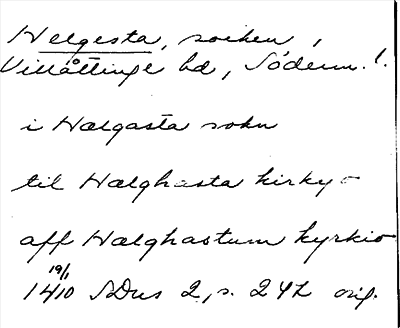 Helgesta, socken,
Villåttinge hd, Söderm. l.
i Hælgasta sokn
til Hælghasta kirkyo
aff Hælghastum kyrkio
19/1
1410 SDns 2, s. 242 orig.